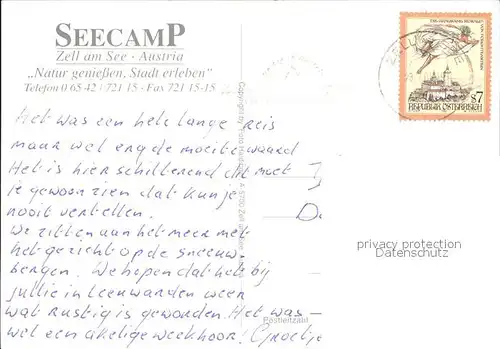 SEECAMP
Zell am See · Austria
„Natur genießen, Stadt erleben"
Telefon 0 65 42 / 721 15 · Fax 721 15-15
S7
REPUBLIK ÖSTERREICH
Het was een hele lange reis
maar wel erg de moeite waard
Het is hier schitterend dit moet
je gewoon zien dat kun je
nooit vertellen.
We zitten aan het meer met
het gezicht op de sneeuw-
bergen. We hopen dat het bij
jullie in Leeuwarden weer
wat rustig is geworden. Het was
wel een akelige week hoor! Groetjes
Postleitzahl
privacy protection
Datenschutz